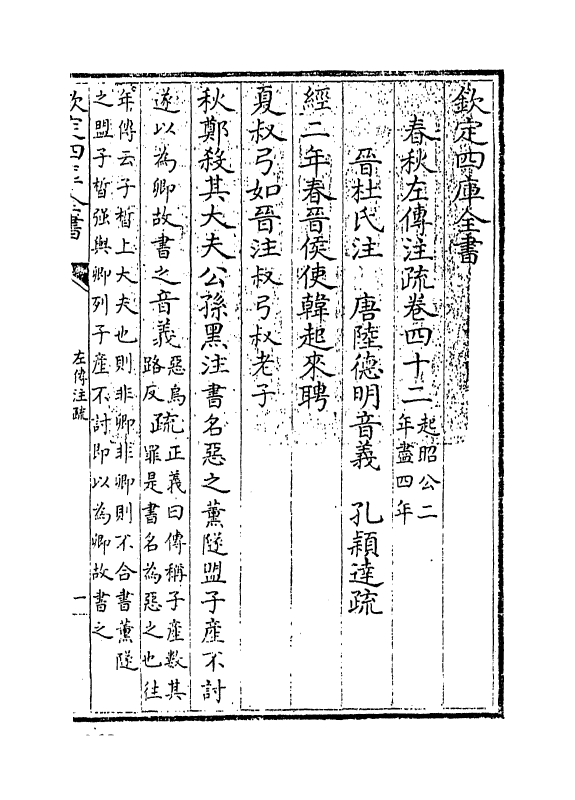 欽定四庫全書
春秋左傳注疏卷四十二
起昭公二
年盡四年
晉杜氏注 唐陸德明音義 孔穎達疏
經二年春晉侯使韓起來聘
夏叔弓如晉注叔弓叔老子
秋鄭殺其大夫公孫黑注書名惡之薰隧盟子產不討
遂以為卿故書之音義
惡烏
路反
疏
正義曰傳稱子產數其
罪是書名為惡之也往
年傳云子晳上大夫也則非卿非卿則不合書薰隧
之盟子晳强與卿列子產不討即以為卿故書之
欽定四庫全書
左傳注疏
一